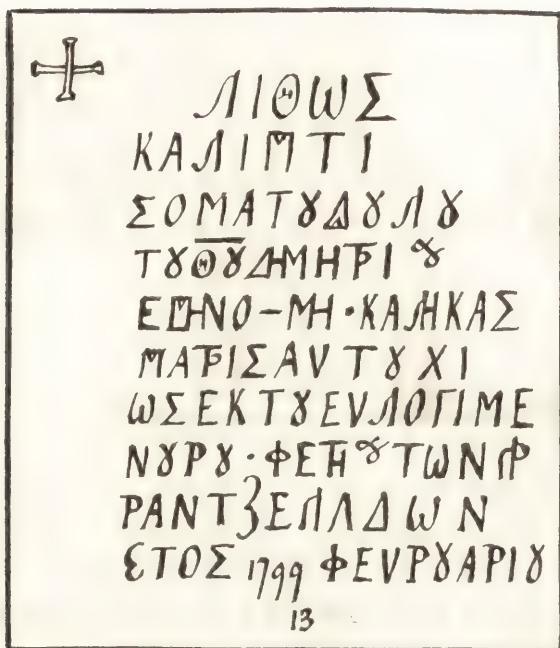 ΛΙΘΩΣ
ΚΑΛΙΠΤΙ
ΣΟΜΑΤȢΔȢΛȢ
ΤȢΘ̅Ȣ̅ΔΗΜΗΤΡΙȢ
ΚΑΛΗΚΑΣ
ΜΑΤΡΙΣΑΥΤȢΧΙ
ΩΣΕΚΤȢΕVΛΟΓΙΜΕ
ΝȢΡȢ·
ΡΑΝΤΖΕΛΛΔΩΝ
ΕΤΟΣ 1799 ΦΕVΡȢΑΡΙȢ
13